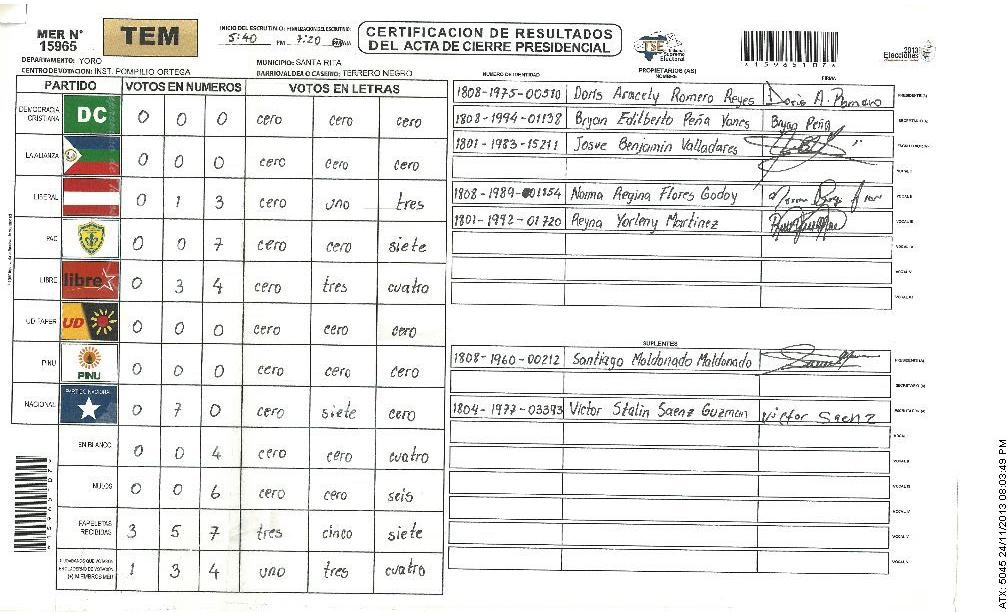 MER N° 15965
TEM
INICIO DEL ESCRUTINIO: FINALIZACION DEL ESCRUTINIO:
5:40 PM 7:20
CERTIFICACION DE RESULTADOS
DEL ACTA DE CIERRE PRESIDENCIAL
TSE Tribunal Supremo Electoral
159651076
2013 Elecciones
DEPARTAMENTO: YORO
MUNICIPIO: SANTA RITA
CENTRO DE VOTACION: INST. POMPILIO ORTEGA
BARRIO/ALDEA O CASERIO: TERRERO NEGRO
PARTIDO VOTOS EN NUMEROS VOTOS EN LETRAS
DEMOCRACIA CRISTIANA DC 0 0 0 cero cero cero
LA ALIANZA 0 0 0 cero cero cero
LIBERAL 0 1 3 cero uno tres
PAC 0 0 7 cero cero siete
LIBRE libre 0 3 4 cero tres cuatro
UD FAPER UD 0 0 0 cero cero cero
PINU PINU 0 0 0 cero cero cero
NACIONAL PARTIDO NACIONAL 0 7 0 cero siete cero
EN BLANCO 0 0 4 cero cero cuatro
NULOS 0 0 6 cero cero seis
PAPELETAS RECIBIDAS 3 5 7 tres cinco siete
CIUDADANOS QUE VOTARON EN CUADERNO DE VOTACION (+) MIEMBROS MER 1 3 4 uno tres cuatro
NUMERO DE IDENTIDAD PROPIETARIOS (AS) NOMBRE FIRMA
1808-1975-00510 Doris Aracely Romero Reyes Doris A. Romero PRESIDENTE (A)
1808-1994-01138 Bryan Edilberto Peña Yanes Bryan Peña SECRETARIO (A)
1801-1983-15211 Josue Benjamin Valladares ESCRUTADOR (A)
VOCAL I
1808-1989-01154 Norma Regina Flores Godoy VOCAL II
1801-1992-01720 Reyna Yorleny Martinez VOCAL III
VOCAL IV
VOCAL V
VOCAL VI
SUPLENTES
1808-1960-00212 Santiago Maldonado Maldonado PRESIDENTE (A)
SECRETARIO (A)
1804-1977-03393 Victor Stalin Saenz Guzman Victor Saenz ESCRUTADOR (A)
VOCAL I
VOCAL II
VOCAL III
VOCAL IV
VOCAL V
VOCAL VI
ATX: 5045 24/11/2013 08:03:49 PM